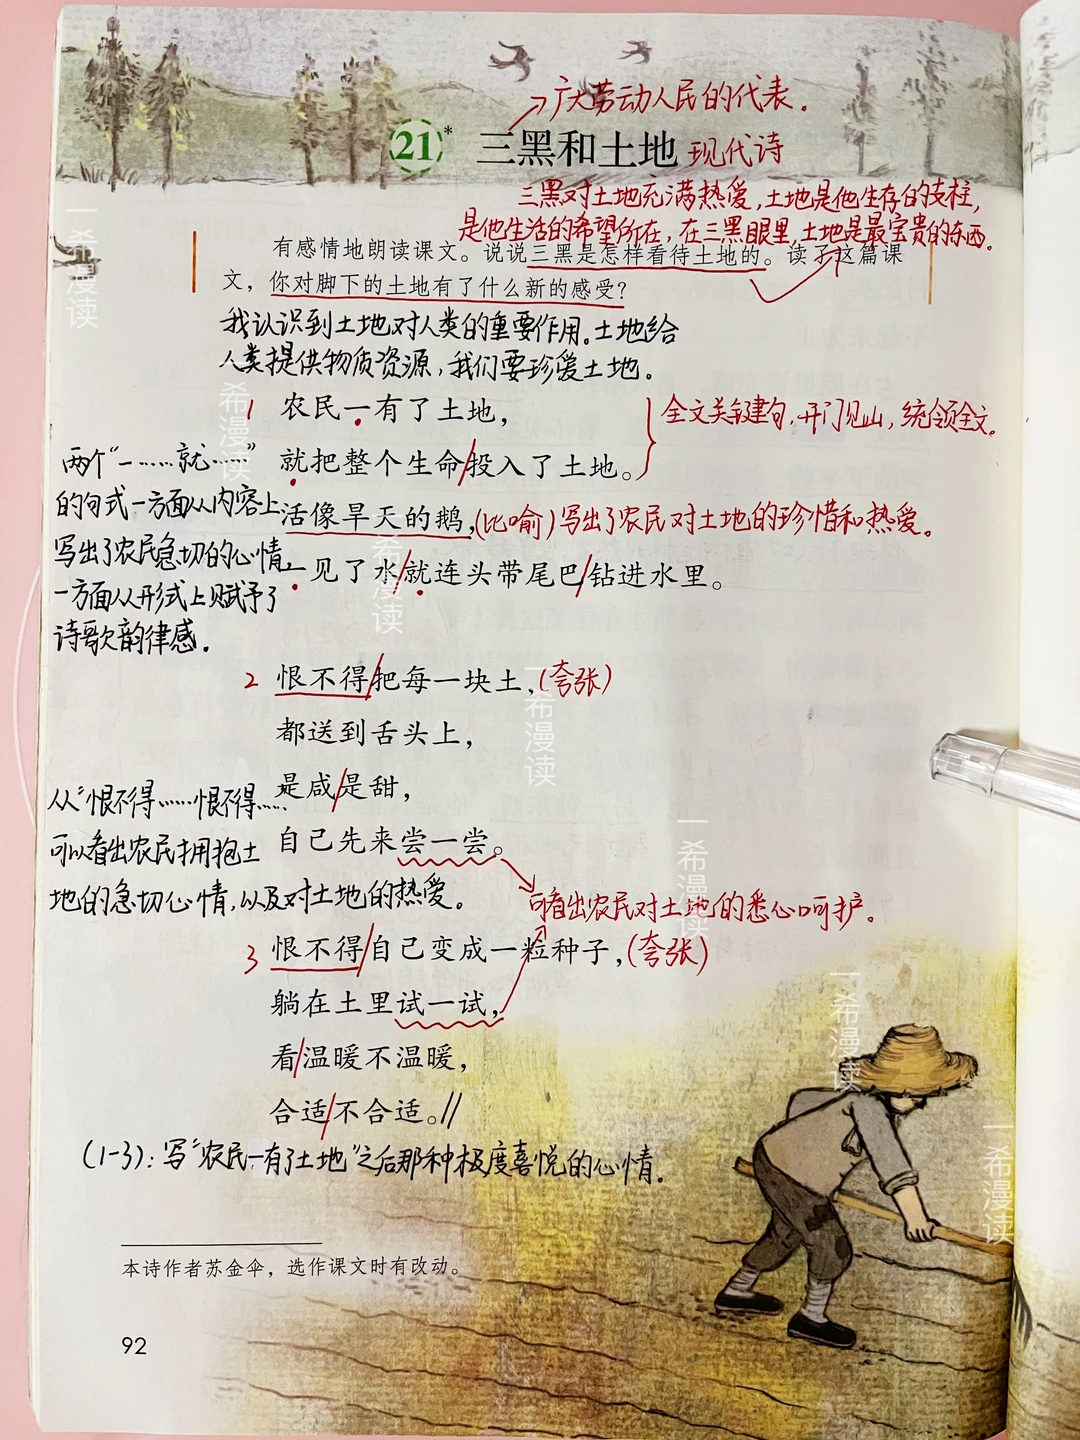 广大劳动人民的代表。
21* 三黑和土地 现代诗
三黑对土地充满热爱,土地是他生存的支柱,
是他生活的希望所在,在三黑眼里,土地是最宝贵的东西。
有感情地朗读课文。说说三黑是怎样看待土地的。读了这篇课
文，你对脚下的土地有了什么新的感受？
我认识到土地对人类的重要作用。土地给
人类提供物质资源,我们要珍爱土地。
1 农民一有了土地，
全文关键句,开门见山,统领全文。
两个“一……就……”
就把整个生命/投入了土地。
的句式一方面从内容上
活像旱天的鹅，(比喻)写出了农民对土地的珍惜和热爱。
写出了农民急切的心情,
一见了水/就连头带尾巴/钻进水里。
一方面从形式上赋予了
诗歌韵律感。
2 恨不得/把每一块土，(夸张)
都送到舌头上，
是咸/是甜，
从“恨不得……恨不得……
自己先来尝一尝。
可以看出农民拥抱土
地的急切心情,以及对土地的热爱。
可看出农民对土地的悉心呵护。
3 恨不得/自己变成一粒种子，(夸张)
躺在土里试一试，
看/温暖不温暖，
合适/不合适。//
(1-3):写“农民一有了土地”之后那种极度喜悦的心情。
本诗作者苏金伞，选作课文时有改动。
92
一希漫读
一希漫读
一希漫读
一希漫读
一希漫读
一希漫读
一希漫读